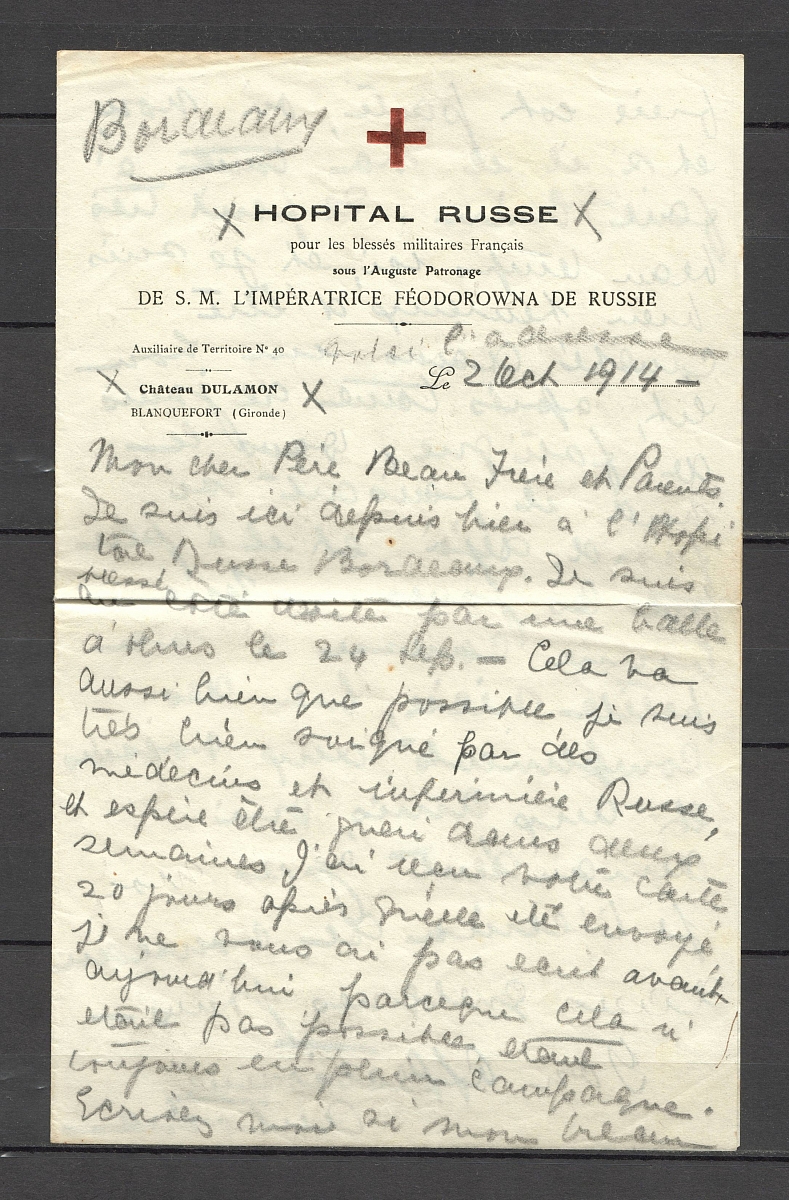 Bordeaux
X HOPITAL RUSSE X
pour les blessés militaires Français
sous l'Auguste Patronage
DE S. M. L'IMPÉRATRICE FÉODOROWNA DE RUSSIE
Auxiliaire de Territoire Nº 40
voici l'adresse
Le 2 Oct 1914 –
X Château DULAMON X
BLANQUEFORT (Gironde)
Mon cher Père Beau Frère et Parents.
Je suis ici depuis hier à l'Hopi
tal Russe Bordeaux. Je suis
blessé
au coté droite par une balle
d'obus le 24 sep. – Cela va
aussi bien que possible je suis
très bien soigné par des
médecins et infirmière Russe,
et espère être gueri dans deux
semaines J'ai reçu votre carte
20 jours après qu'elle été envoyé,
je ne vous ai pas ecrit avant
aujourd'hui parceque cela n'
etait pas possible etant
toujours en plein campagne.
Ecrivez moi si mon beau